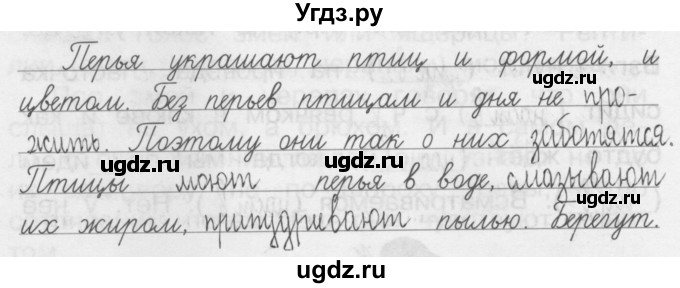 Угдз.ру
Перья украшают птиц и формой, и
цветом. Без перьев птицам и дня не про-
жить. Поэтому они так о них заботятся.
Птицы моют перья в воде, смазывают
их жиром, припудривают пылью. Берегут.
ugdz.ru
ugdz.ru
ugdz.ru
ugdz.ru
ugdz.ru
ugdz.ru